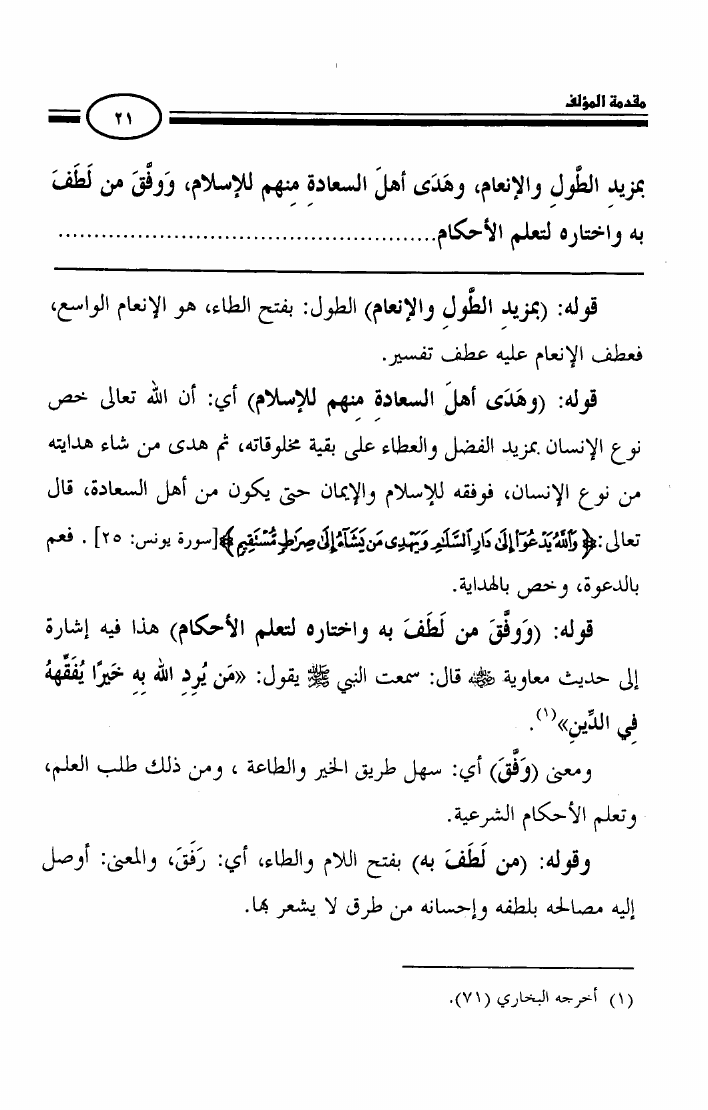 مقدمة المؤلف
٢١
بمزيدِ الطَّولِ والإنعام، وهَدَى أهلَ السعادةِ مِنهم للإسلام، وَوفَّقَ من لَطَفَ
به واختاره لتعلم الأحكام....................................................
قوله: (بمزيدِ الطَّولِ والإنعام) الطول: بفتح الطاء، هو الإنعام الواسع،
فعطف الإنعام عليه عطف تفسير.
قوله: (وهَدَى أهلَ السعادةِ مِنهم للإسلام) أي: أن الله تعالى خص
نوع الإنسان بمزيد الفضل والعطاء على بقية مخلوقاته، ثم هدى من شاء هدايته
من نوع الإنسان، فوفقه للإسلام والإيمان حتى يكون من أهل السعادة، قال
تعالى: ﴿وَٱللَّهُ يَدْعُوٓا۟ إِلَىٰ دَارِ ٱلسَّلَـٰمِ وَيَهْدِى مَن يَشَآءُ إِلَىٰ صِرَٰطٍ مُّسْتَقِيمٍ﴾ [سورة يونس: ٢٥] . فعم
بالدعوة، وخص بالهداية.
قوله: (وَوفَّقَ من لَطَفَ به واختاره لتعلم الأحكام) هذا فيه إشارة
إلى حديث معاوية ﷺ قال: سمعت النبي ﷺ يقول: «مَن يُرِدِ الله بِهِ خَيرًا يُفَقِّههُ
فِي الدِّينِ»(١).
ومعنى (وَفَّقَ) أي: سهل طريق الخير والطاعة ، ومن ذلك طلب العلم،
وتعلم الأحكام الشرعية.
وقوله: (من لَطَفَ به) بفتح اللام والطاء، أي: رَفَقَ، والمعنى: أوصل
إليه مصالحه بلطفه وإحسانه من طرق لا يشعر بها.
(١) أخرجه البخاري (٧١).